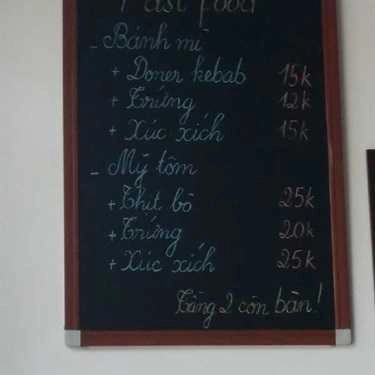 Fast food
- Bánh mì
+ Doner kebab 15k
+ Trứng 12k
+ Xúc xích 15k
- Mỹ tôm
+ Thịt bò 25k
+ Trứng 20k
+ Xúc xích 25k
Tầng 2 còn bàn!